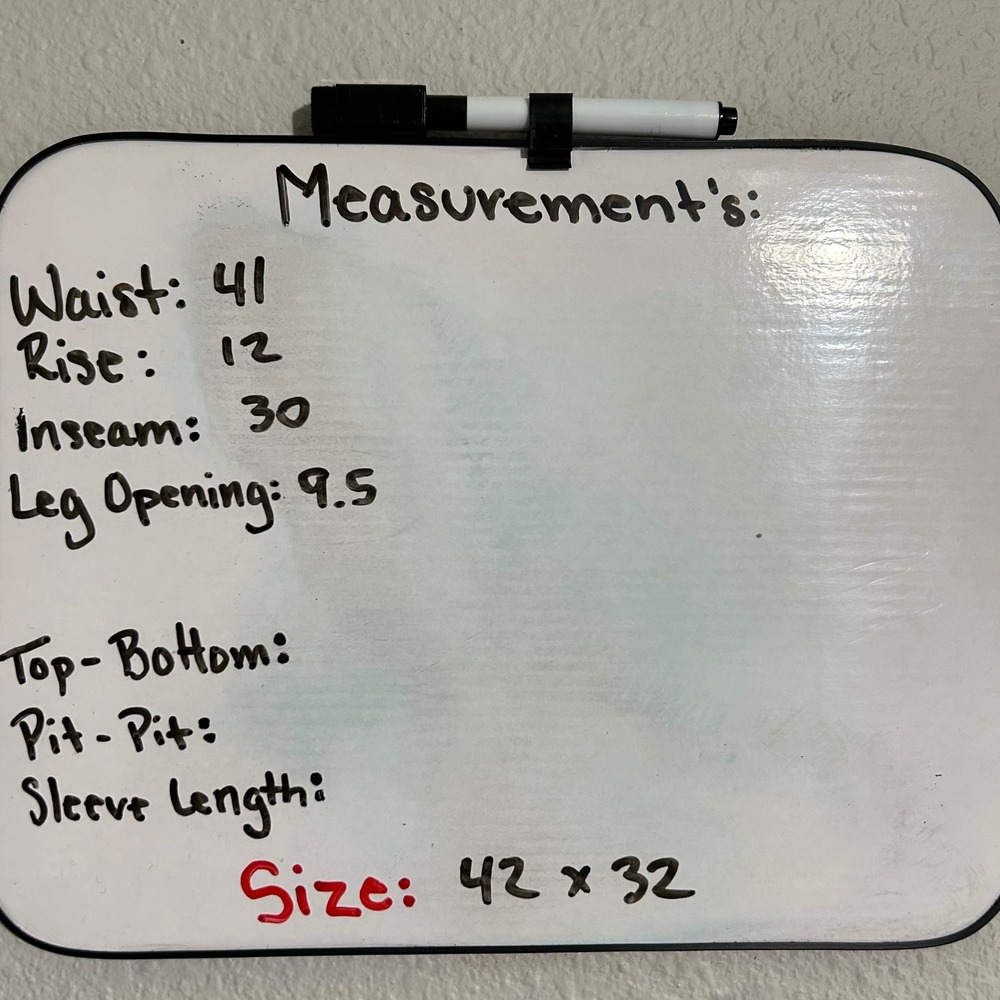 Measurement's:
Waist: 41
Rise: 12
Inseam: 30
Leg Opening: 9.5
Top-Bottom:
Pit-Pit:
Sleeve Length:
Size: 42 x 32